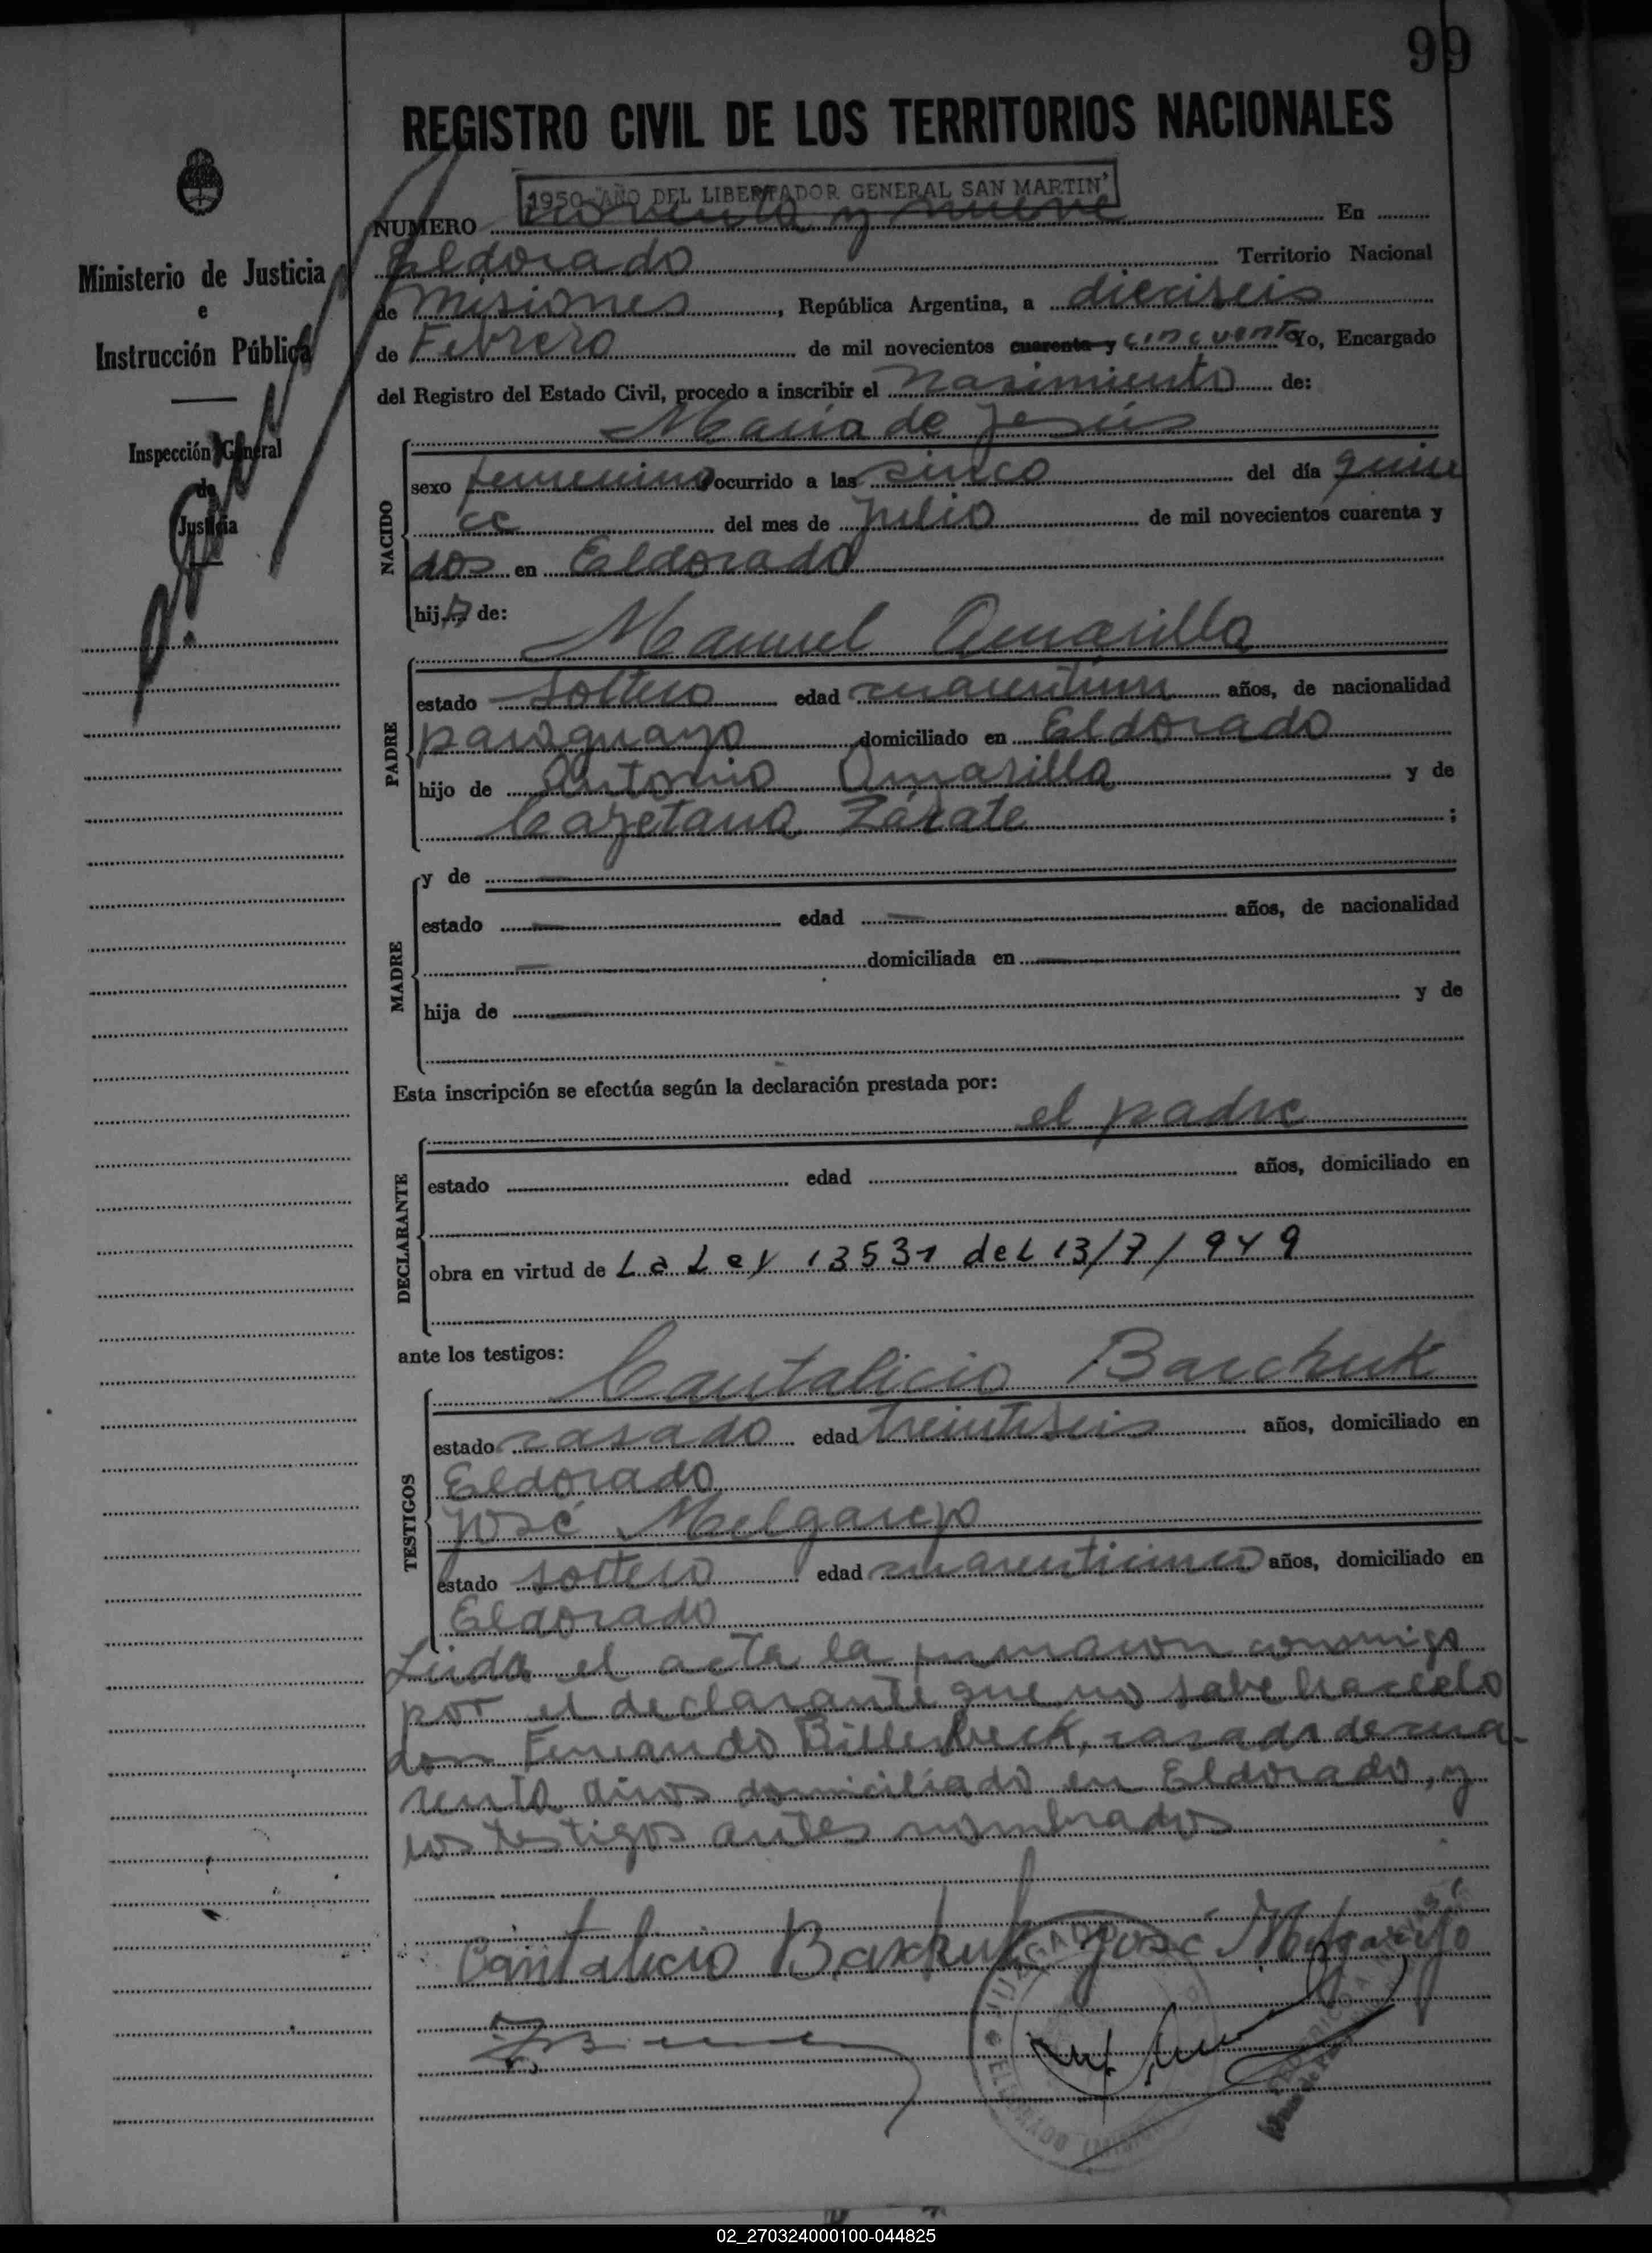 99
REGISTRO CIVIL DE LOS TERRITORIOS NACIONALES
1950 "AÑO DEL LIBERTADOR GENERAL SAN MARTIN"
NUMERO noventa y nueve En
Eldorado Territorio Nacional
de Misiones, República Argentina, a dieciseis
de Febrero de mil novecientos cuarenta y cincuenta Yo, Encargado
del Registro del Estado Civil, procedo a inscribir el nasimiento de:
Ministerio de Justicia
e
Instrucción Pública
Inspección General
de
Justicia
María de Jesús
NACIDO
sexo femenino ocurrido a las cinco del día quin
ce del mes de julio de mil novecientos cuarenta y
dos en Eldorado
hija de:
Manuel Amarilla
PADRE
estado soltero edad cuarentiun años, de nacionalidad
paraguayo domiciliado en Eldorado
hijo de Antonio Amarilla y de
Cayetana Zárate ;
MADRE
y de
estado edad años, de nacionalidad
domiciliada en
hija de y de
Esta inscripción se efectúa según la declaración prestada por:
el padre
DECLARANTE
estado edad años, domiciliado en
obra en virtud de La Ley 13531 del 13/7/949
ante los testigos:
Cantalicio Barchuk
TESTIGOS
estado casado edad treintiseis años, domiciliado en
Eldorado
José Melgarejo
estado soltero edad cuarenticinco años, domiciliado en
Eldorado
Leida el acta la firmaron conmigo
por el declarante que no sabe hacerlo
don Fernando Billerbeck, casado de cua-
renta años domiciliado en Eldorado, y
los testigos antes nombrados
Cantalicio Barchuk José Melgarejo
JUZGADO
ELDORADO (MISIONES)
02_270324000100-044825